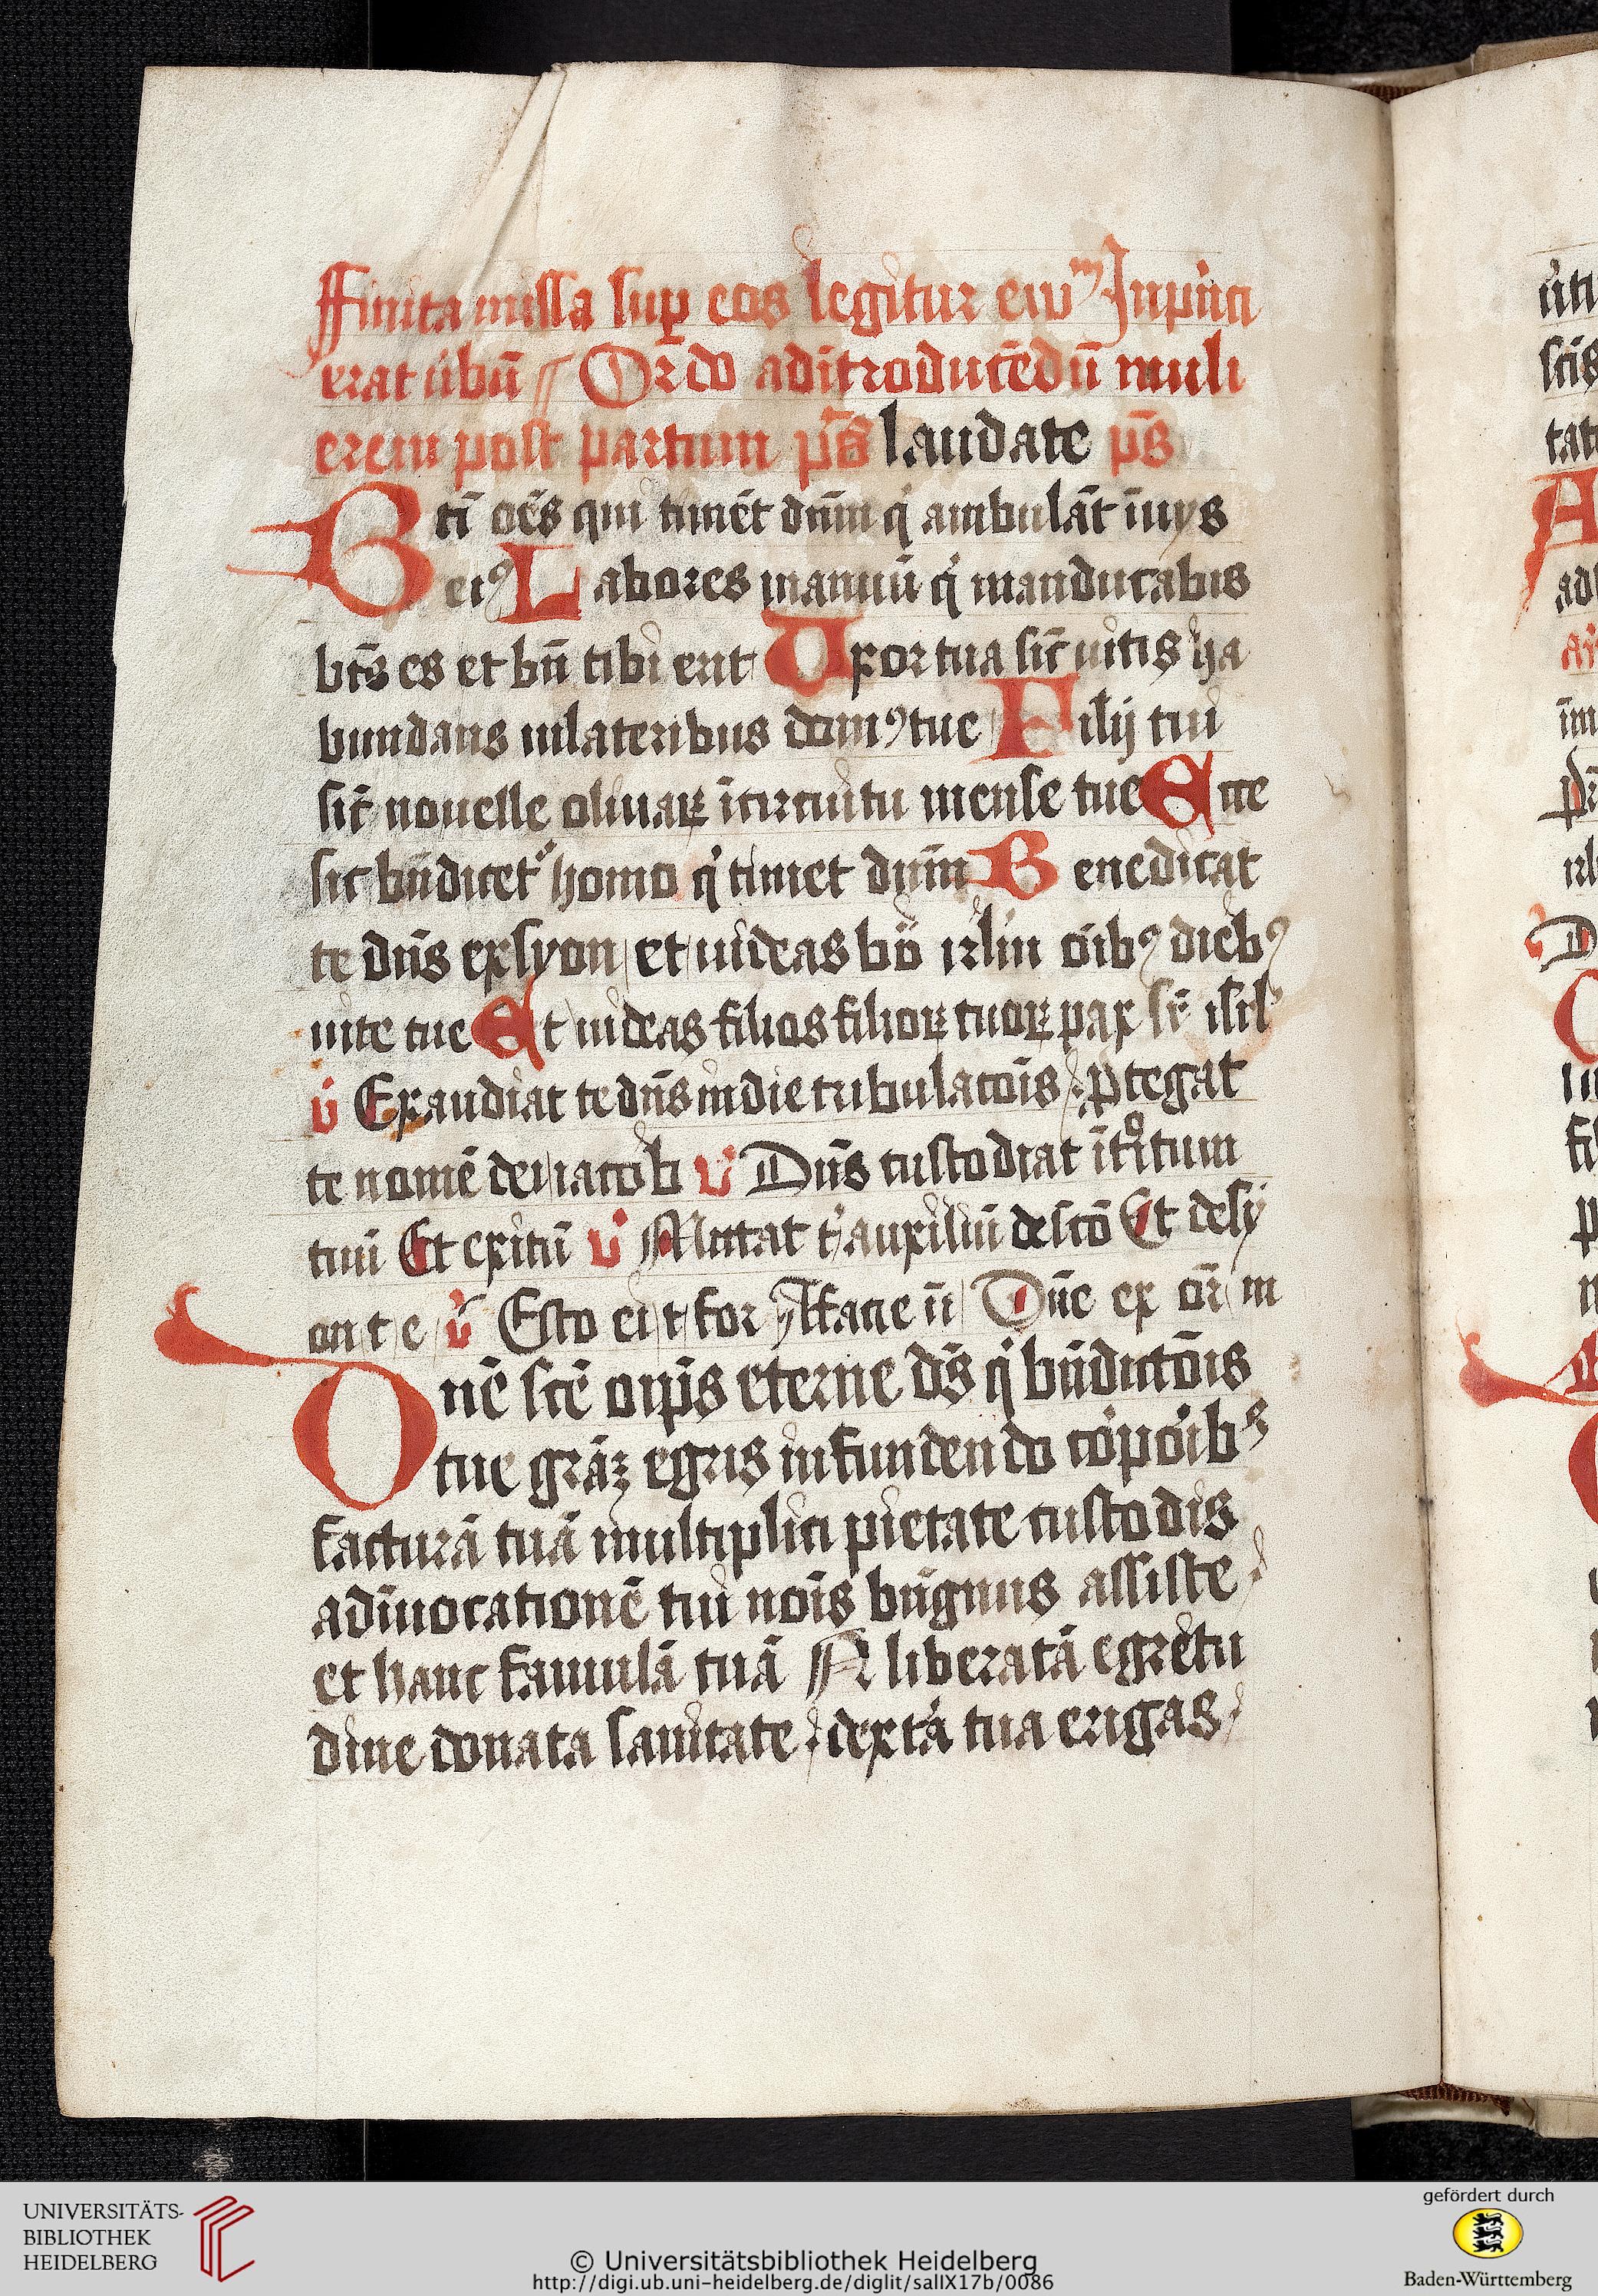 Finita missa sup eos legitur ewm Inpͥnci
erat ũbũ Ordo adĩtroducẽdũ muli
erem post partum pͫs laudate pͫs
Bti oẽs qui timẽt dñm qͥ ambulãt ĩuijs
eiꝰ Labores manuũ qͥ manducabis
bt̃s es et bñ tibi erit Uxor tua sic̃ uitis ha
bundans inlateribus domꝰ tue Filij tui
sic̃ nouelle oliuaꝝ ĩcircuitu mense tue Ecce
sic bñdicet᷑ homo qͥ timet dñm Benedicat
te dñs exsyon et uideas bõ irl̃m oĩbꝰ diebꝰ
uite tue Et uideas filios filioꝝ tuoꝝ pax sꝑ isrl̃
v̾ Exaudiat te dñs indie tribulacõis ꝓtegat
te nomẽ dei iacob v̾ Dñs custodiat ĩtᵒitum
tuũ Et exitũ v̾ Mittat tͥ auxiliũ de scõ Et de sy
on t e v̾ Esto ei t for Affacie ĩ Dñe ex or̃ m
Dñe sc̃e oĩps eterne ds̃ qͥ bñdictõis
tue gr̃aꝫ egris infundendo corporibꝰ
facturã tuã multiplici pietate custodis
adĩuocationẽ tui noĩs bñgnus assiste
et hanc famulã tuã N liberatã egretu
dine donata sanitate dextͣa tua erigas
UNIVERSITÄTS-
BIBLIOTHEK
HEIDELBERG
© Universitätsbibliothek Heidelberg
http://digi.ub.uni-heidelberg.de/diglit/salIX17b/0086
gefördert durch
Baden-Württemberg